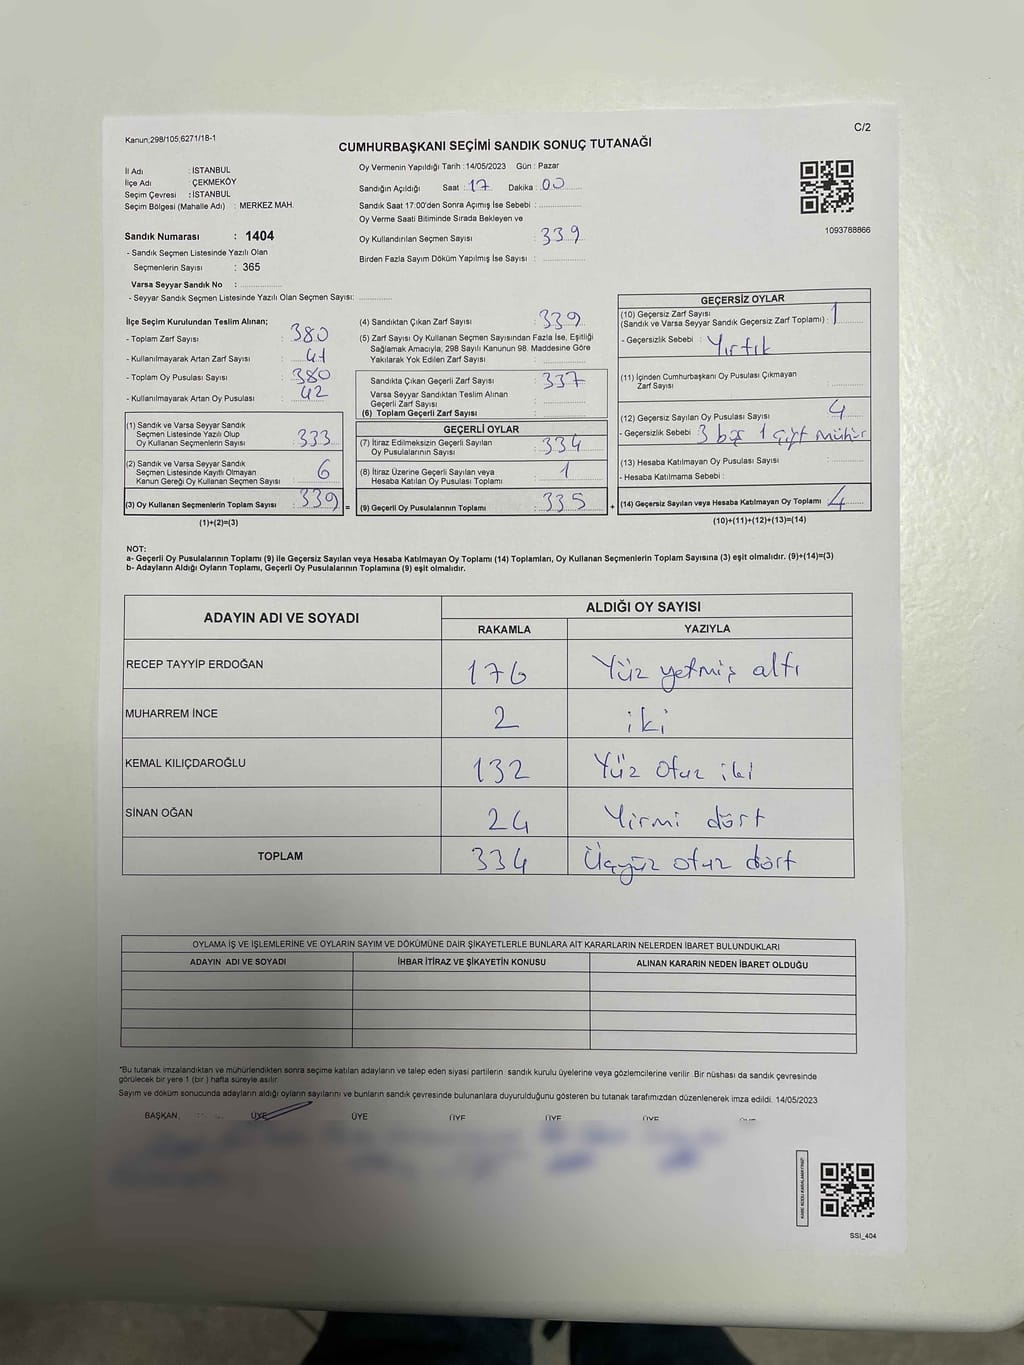 Kanun;298/105,6271/18-1
C/2
CUMHURBAŞKANI SEÇİMİ SANDIK SONUÇ TUTANAĞI
İl Adı : İSTANBUL
İlçe Adı : ÇEKMEKÖY
Seçim Çevresi : İSTANBUL
Seçim Bölgesi (Mahalle Adı) : MERKEZ MAH.
Sandık Numarası : 1404
- Sandık Seçmen Listesinde Yazılı Olan
Seçmenlerin Sayısı : 365
Varsa Seyyar Sandık No :
- Seyyar Sandık Seçmen Listesinde Yazılı Olan Seçmen Sayısı:
Oy Vermenin Yapıldığı Tarih : 14/05/2023 Gün : Pazar
Sandığın Açıldığı Saat : 17 Dakika : 00
Sandık Saat 17:00'den Sonra Açımış İse Sebebi :
Oy Verme Saati Bitiminde Sırada Bekleyen ve
Oy Kullandırılan Seçmen Sayısı : 339
Birden Fazla Sayım Döküm Yapılmış İse Sayısı :
1093788866
İlçe Seçim Kurulundan Teslim Alınan;
- Toplam Zarf Sayısı : 380
- Kullanılmayarak Artan Zarf Sayısı : 41
- Toplam Oy Pusulası Sayısı : 380
- Kullanılmayarak Artan Oy Pusulası : 42
(1) Sandık ve Varsa Seyyar Sandık
Seçmen Listesinde Yazılı Olup
Oy Kullanan Seçmenlerin Sayısı : 333
(2) Sandık ve Varsa Seyyar Sandık
Seçmen Listesinde Kayıtlı Olmayan
Kanun Gereği Oy Kullanan Seçmen Sayısı : 6
(3) Oy Kullanan Seçmenlerin Toplam Sayısı : 339 =
(1)+(2)=(3)
(4) Sandıktan Çıkan Zarf Sayısı : 339
(5) Zarf Sayısı Oy Kullanan Seçmen Sayısından Fazla İse, Eşitliği
Sağlamak Amacıyla, 298 Sayılı Kanunun 98. Maddesine Göre
Yakılarak Yok Edilen Zarf Sayısı :
Sandıkta Çıkan Geçerli Zarf Sayısı : 337
Varsa Seyyar Sandıktan Teslim Alınan
Geçerli Zarf Sayısı :
(6) Toplam Geçerli Zarf Sayısı :
GEÇERLİ OYLAR
(7) İtiraz Edilmeksizin Geçerli Sayılan
Oy Pusulalarının Sayısı : 334
(8) İtiraz Üzerine Geçerli Sayılan veya
Hesaba Katılan Oy Pusulası Toplamı : 1
(9) Geçerli Oy Pusulalarının Toplamı : 335 +
GEÇERSİZ OYLAR
(10) Geçersiz Zarf Sayısı
(Sandık ve Varsa Seyyar Sandık Geçersiz Zarf Toplamı) : 1
- Geçersizlik Sebebi : Yırtık
(11) İçinden Cumhurbaşkanı Oy Pusulası Çıkmayan
Zarf Sayısı :
(12) Geçersiz Sayılan Oy Pusulası Sayısı : 4
- Geçersizlik Sebebi : 3 boş 1 çift mühür
(13) Hesaba Katılmayan Oy Pusulası Sayısı :
- Hesaba Katılmama Sebebi :
(14) Geçersiz Sayılan veya Hesaba Katılmayan Oy Toplamı : 4
(10)+(11)+(12)+(13)=(14)
NOT:
a- Geçerli Oy Pusulalarının Toplamı (9) ile Geçersiz Sayılan veya Hesaba Katılmayan Oy Toplamı (14) Toplamları, Oy Kullanan Seçmenlerin Toplam Sayısına (3) eşit olmalıdır. (9)+(14)=(3)
b- Adayların Aldığı Oyların Toplamı, Geçerli Oy Pusulalarının Toplamına (9) eşit olmalıdır.
ADAYIN ADI VE SOYADI ALDIĞI OY SAYISI
RAKAMLA YAZIYLA
RECEP TAYYİP ERDOĞAN 176 Yüz yetmiş altı
MUHARREM İNCE 2 iki
KEMAL KILIÇDAROĞLU 132 Yüz otuz iki
SİNAN OĞAN 24 Yirmi dört
TOPLAM 334 Üçyüz otuz dört
OYLAMA İŞ VE İŞLEMLERİNE VE OYLARIN SAYIM VE DÖKÜMÜNE DAİR ŞİKAYETLERLE BUNLARA AİT KARARLARIN NELERDEN İBARET BULUNDUKLARI
ADAYIN ADI VE SOYADI İHBAR İTİRAZ VE ŞİKAYETİN KONUSU ALINAN KARARIN NEDEN İBARET OLDUĞU
*Bu tutanak imzalandıktan ve mühürlendikten sonra seçime katılan adayların ve talep eden siyasi partilerin sandık kurulu üyelerine veya gözlemcilerine verilir .Bir nüshası da sandık çevresinde
görülecek bir yere 1 (bir ) hafta süreyle asılır.
Sayım ve döküm sonucunda adayların aldığı oyların sayılarını ve bunların sandık çevresinde bulunanlara duyurulduğunu gösteren bu tutanak tarafımızdan düzenlenerek imza edildi. 14/05/2023
BAŞKAN, ÜYE ÜYE ÜYE ÜYE ÜYE
KARE KODU KARALAMAYINIZ!
SSI_404